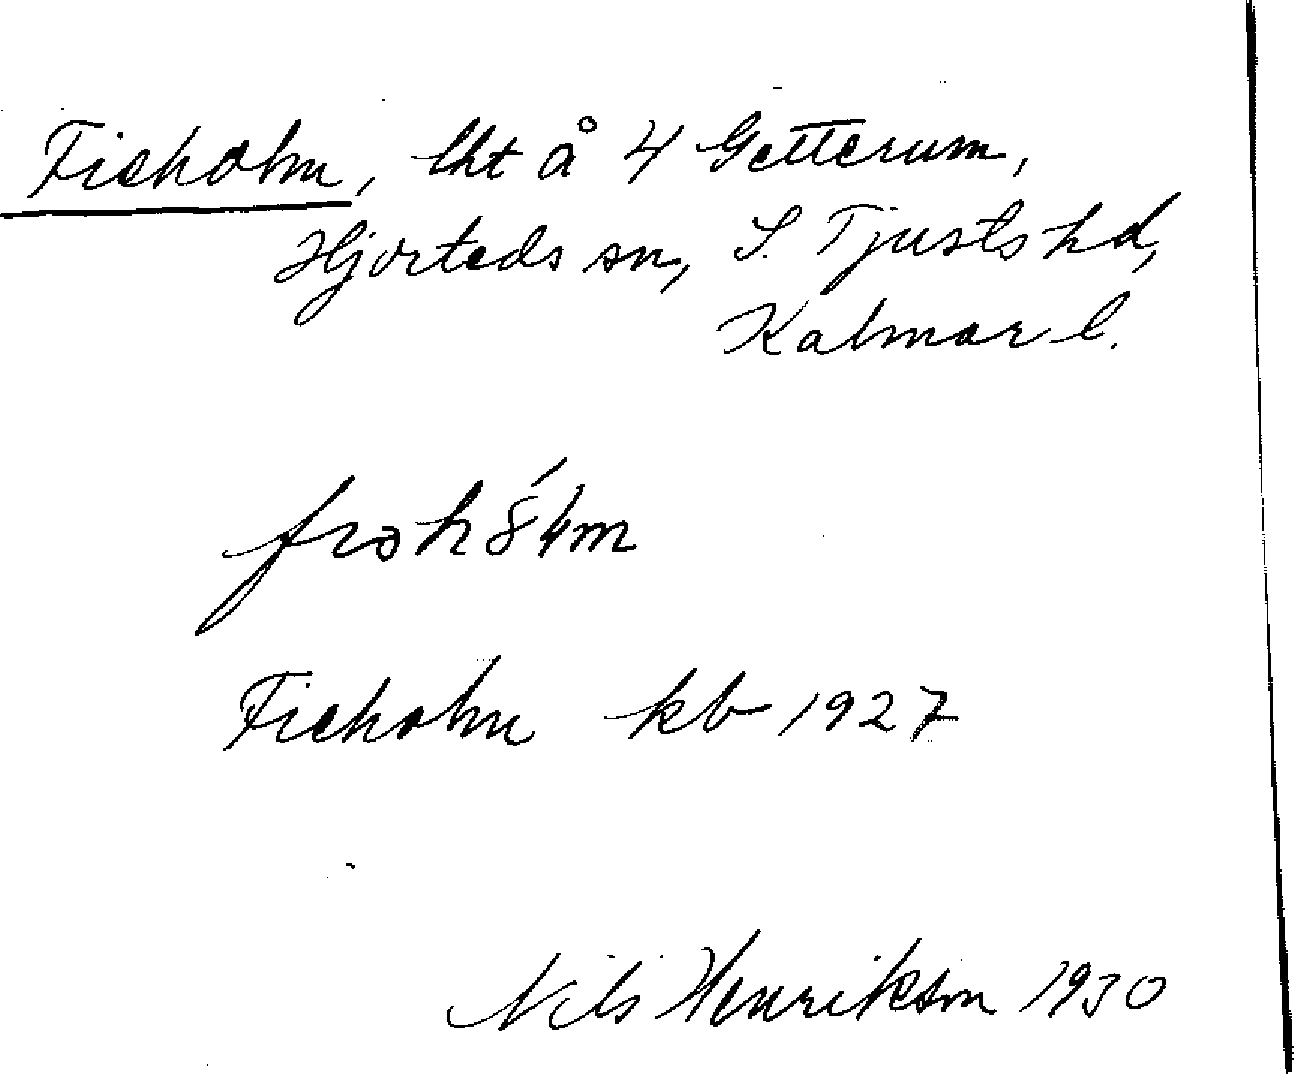 Fieholm, lht å 4 Getterum,
Hjorteds sn, S. Tjusts hd,
Kalmar l.
Fieholm kb 1927
Nils Henrikson 1930